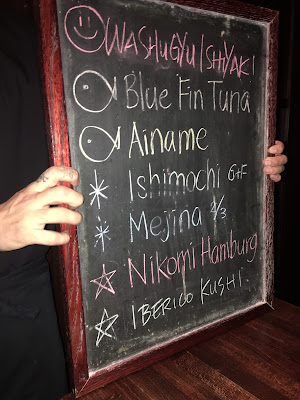 WASHUGYU ISHIYAKI
Blue Fin Tuna
Ainame
Ishimochi G+F
Mejina 2/3
Nikomi Hamburg
IBERICO KUSHI